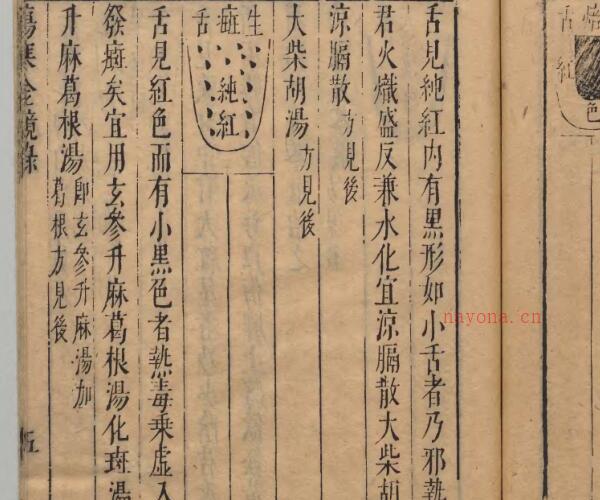 焰
舌
紅
色
舌見純紅內有黑形如小舌者乃邪熱
君火熾盛反兼水化宜涼膈散大柴胡
涼膈散方見後
大柴胡湯方見後
生斑舌
純紅
舌見紅色而有小黑色者熱毒乘虛入
發斑矣宜用玄參升麻葛根湯化斑湯
升麻葛根湯即玄參升麻湯加
葛根方見後
傷寒金鏡錄
五
nayona.cn